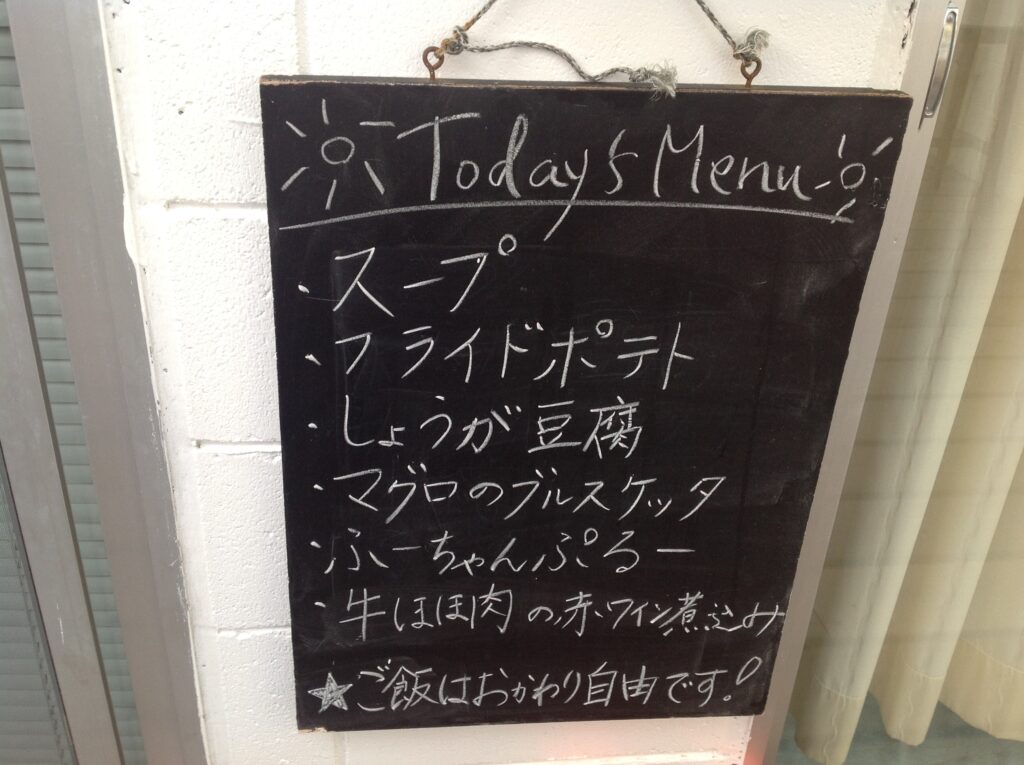 Today's Menu
・スープ
・フライドポテト
・しょうが豆腐
・マグロのブルスケッタ
・ふーちゃんぷるー
・牛ほほ肉の赤ワイン煮込み
★ご飯はおかわり自由です!